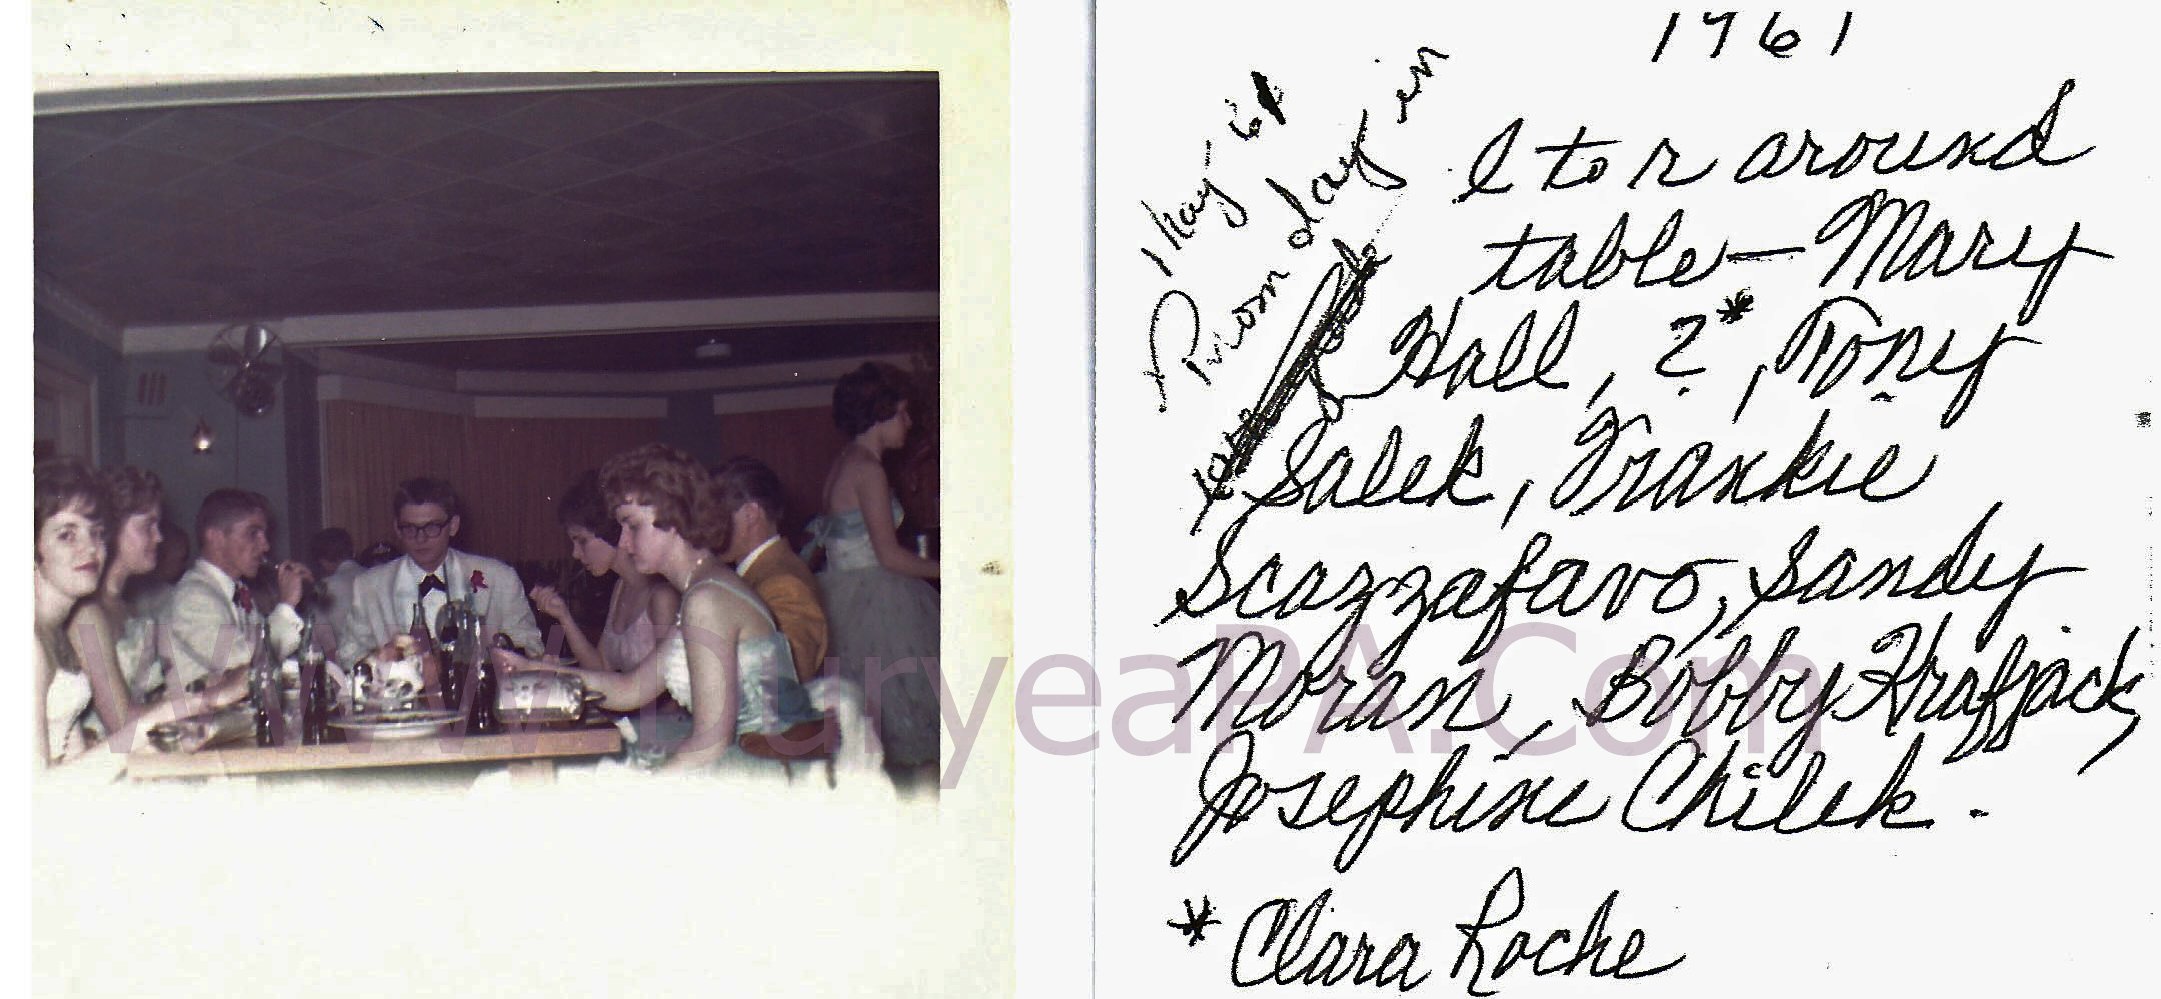 1961
May 61
Prom day in
l to r around
table — Mary
Hall, ?*, Tony
Salek, Frankie
Scazzafavo, Sandy
Moran, Bobby Krafjack,
Josephine Chilek.
* Clara Roche
WWW.DuryeaPA.Com